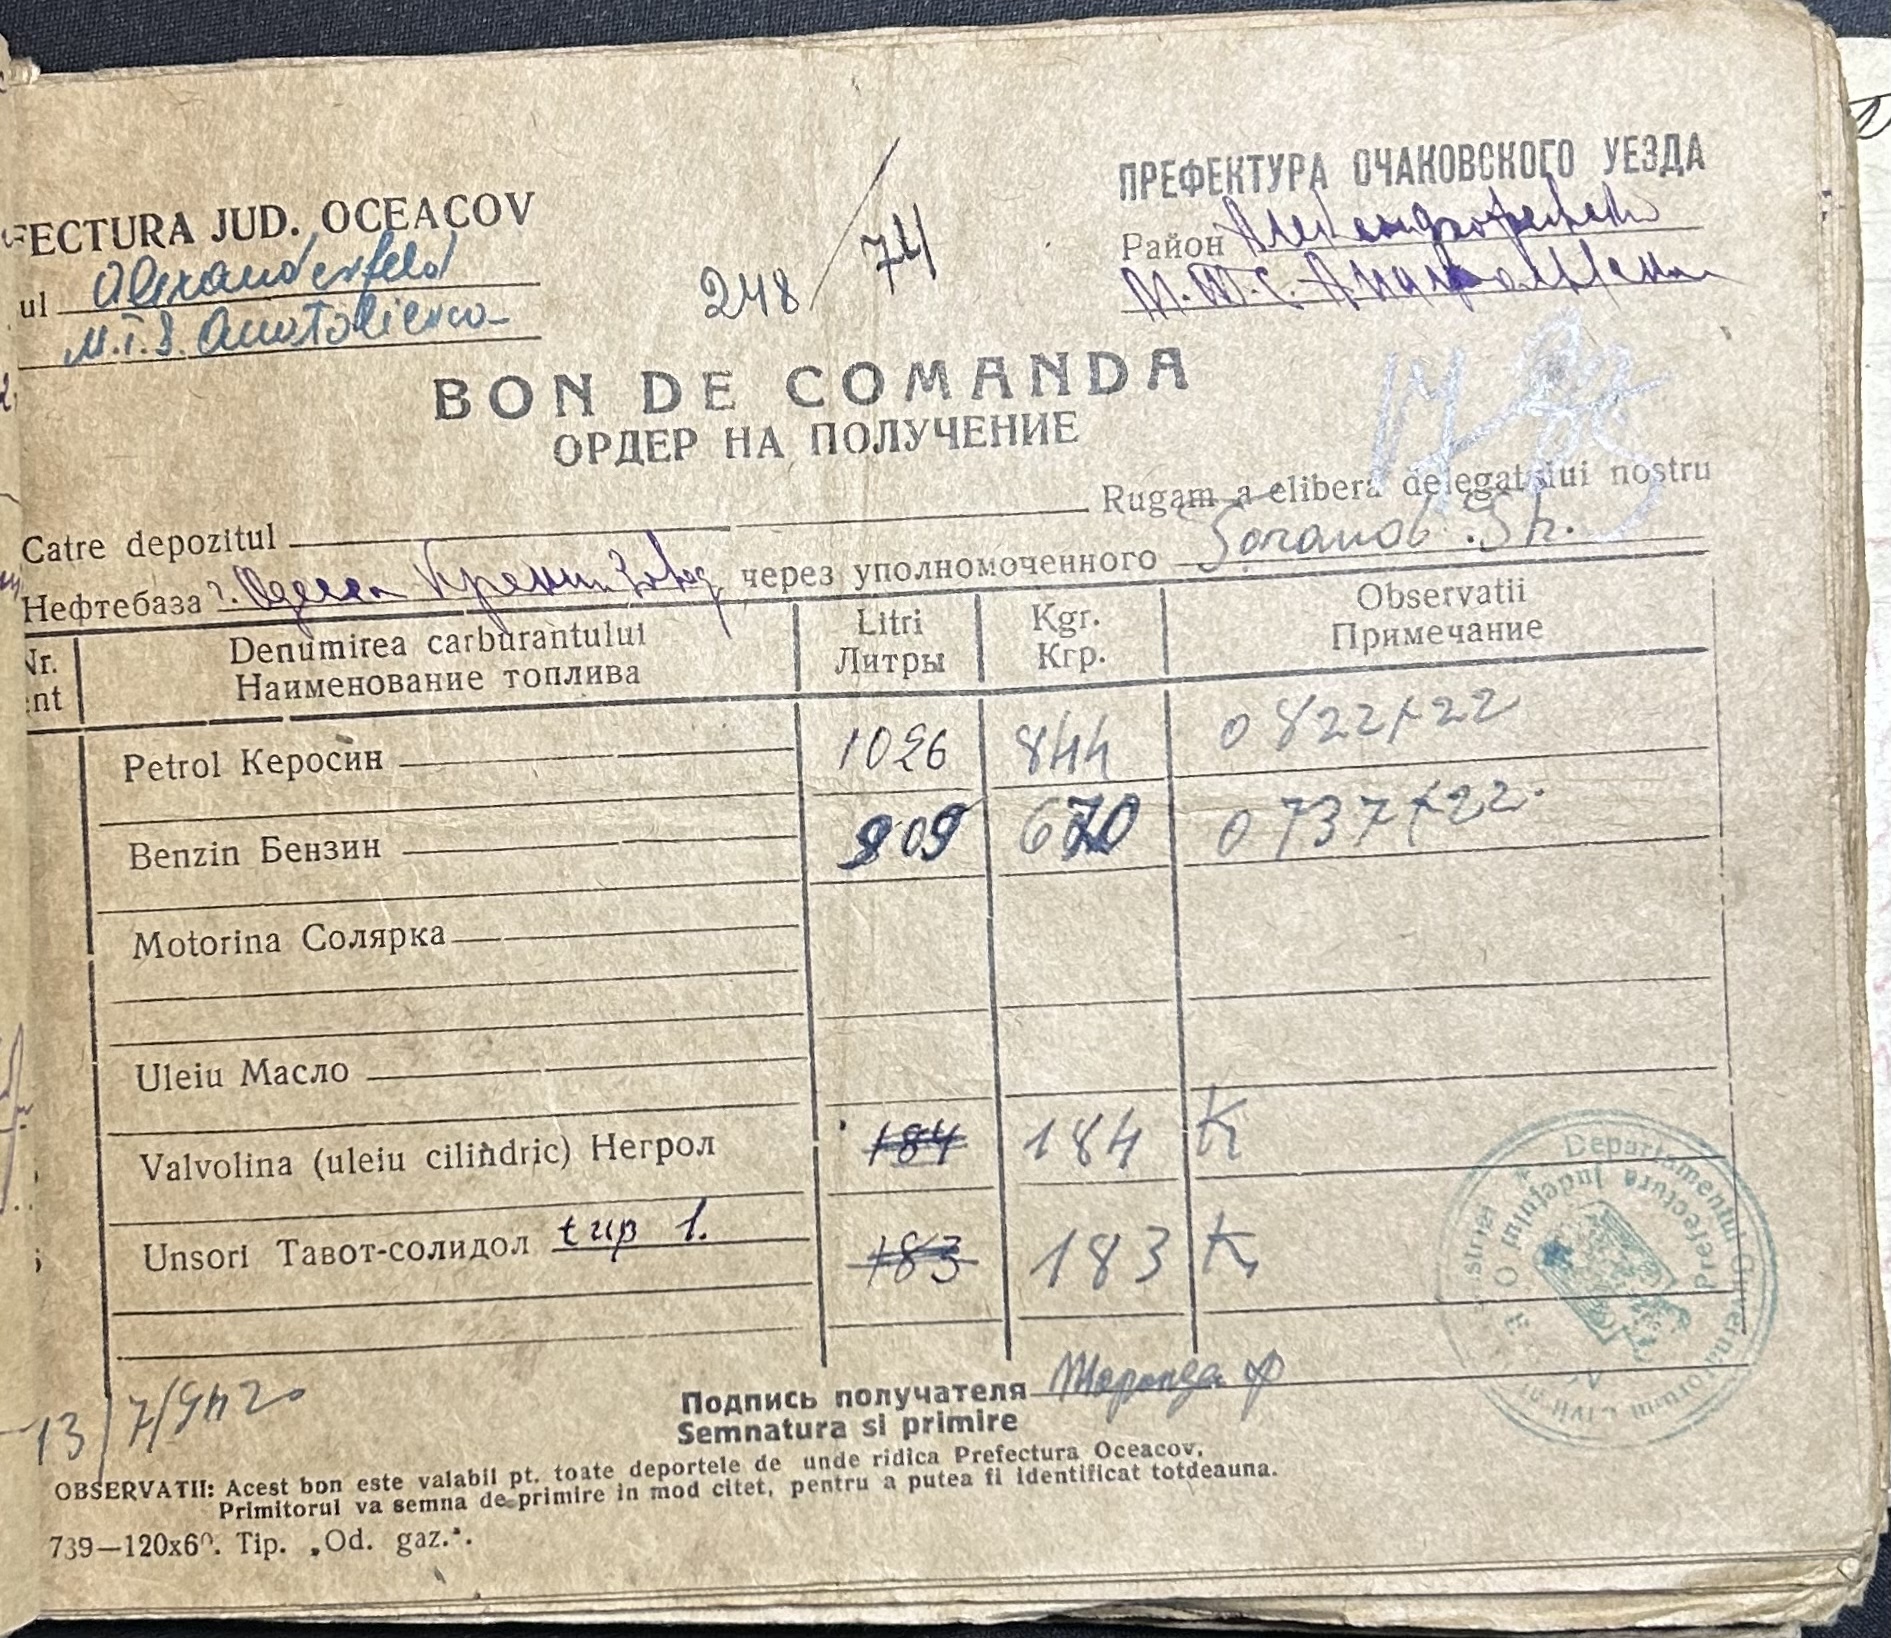 FECTURA JUD. OCEACOV
ul Alexanderfeld
M.T.S.
248/74
ПРЕФЕКТУРА ОЧАКОВСКОГО УЕЗДА
Район
М.Т.С.
BON DE COMANDA
ОРДЕР НА ПОЛУЧЕНИЕ
Catre depozitul Rugam a elibera delegatului nostru
Нефтебаза г. Одесса через уполномоченного
Nr. Denumirea carburantului Litri Kgr. Observatii
nt Наименование топлива Литры Кгр. Примечание
Petrol Керосин 1026 844 0822×22
Benzin Бензин 909 670 0737×22
Motorina Солярка
Uleiu Масло
Valvolina (uleiu cilindric) Негрол 184 184 K
Unsori Тавот-солидол tip 1. 183 183 K
13/7/942
Подпись получателя
Semnatura si primire
OBSERVATII: Acest bon este valabil pt. toate deportele de unde ridica Prefectura Oceacov.
Primitorul va semna de primire in mod citet, pentru a putea fi identificat totdeauna.
739—120x60. Tip. „Od. gaz.".
Prefectura Judeţului